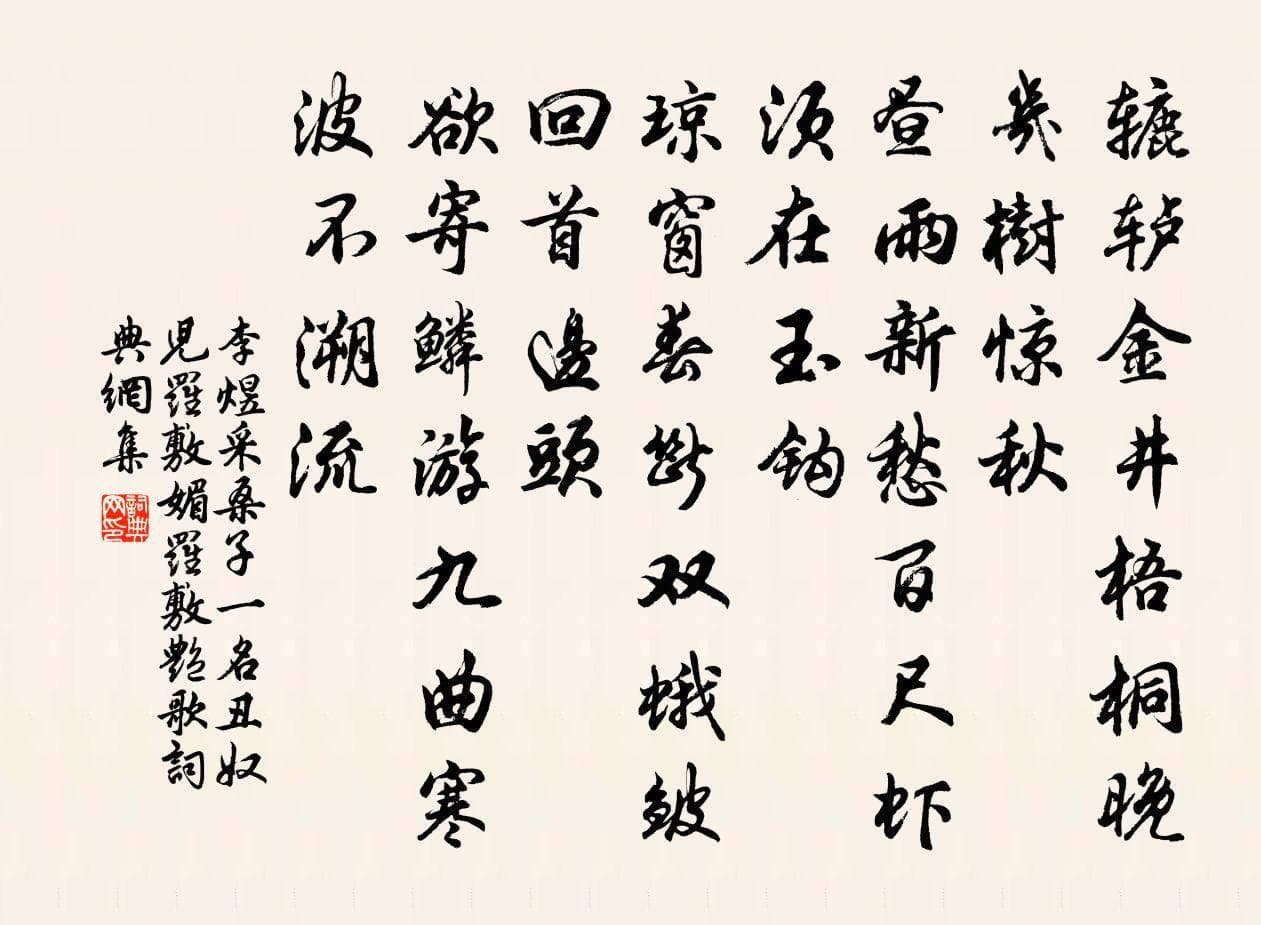 辘轳金井梧桐晚
幾樹惊秋
昼雨新愁百尺虾
须在玉钩
琼窗春断双蛾皱
回首邊頭
欲寄鳞游九曲寒
波不溯流
李煜采桑子一名丑奴
児羅敷媚羅敷艶歌詞
典網集
詞典网印